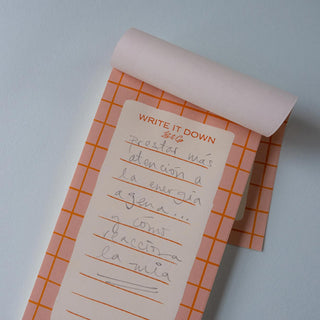 WRITE IT DOWN
Prestar más
atención a
la energía
agena...
y cómo
reacciona
la mía